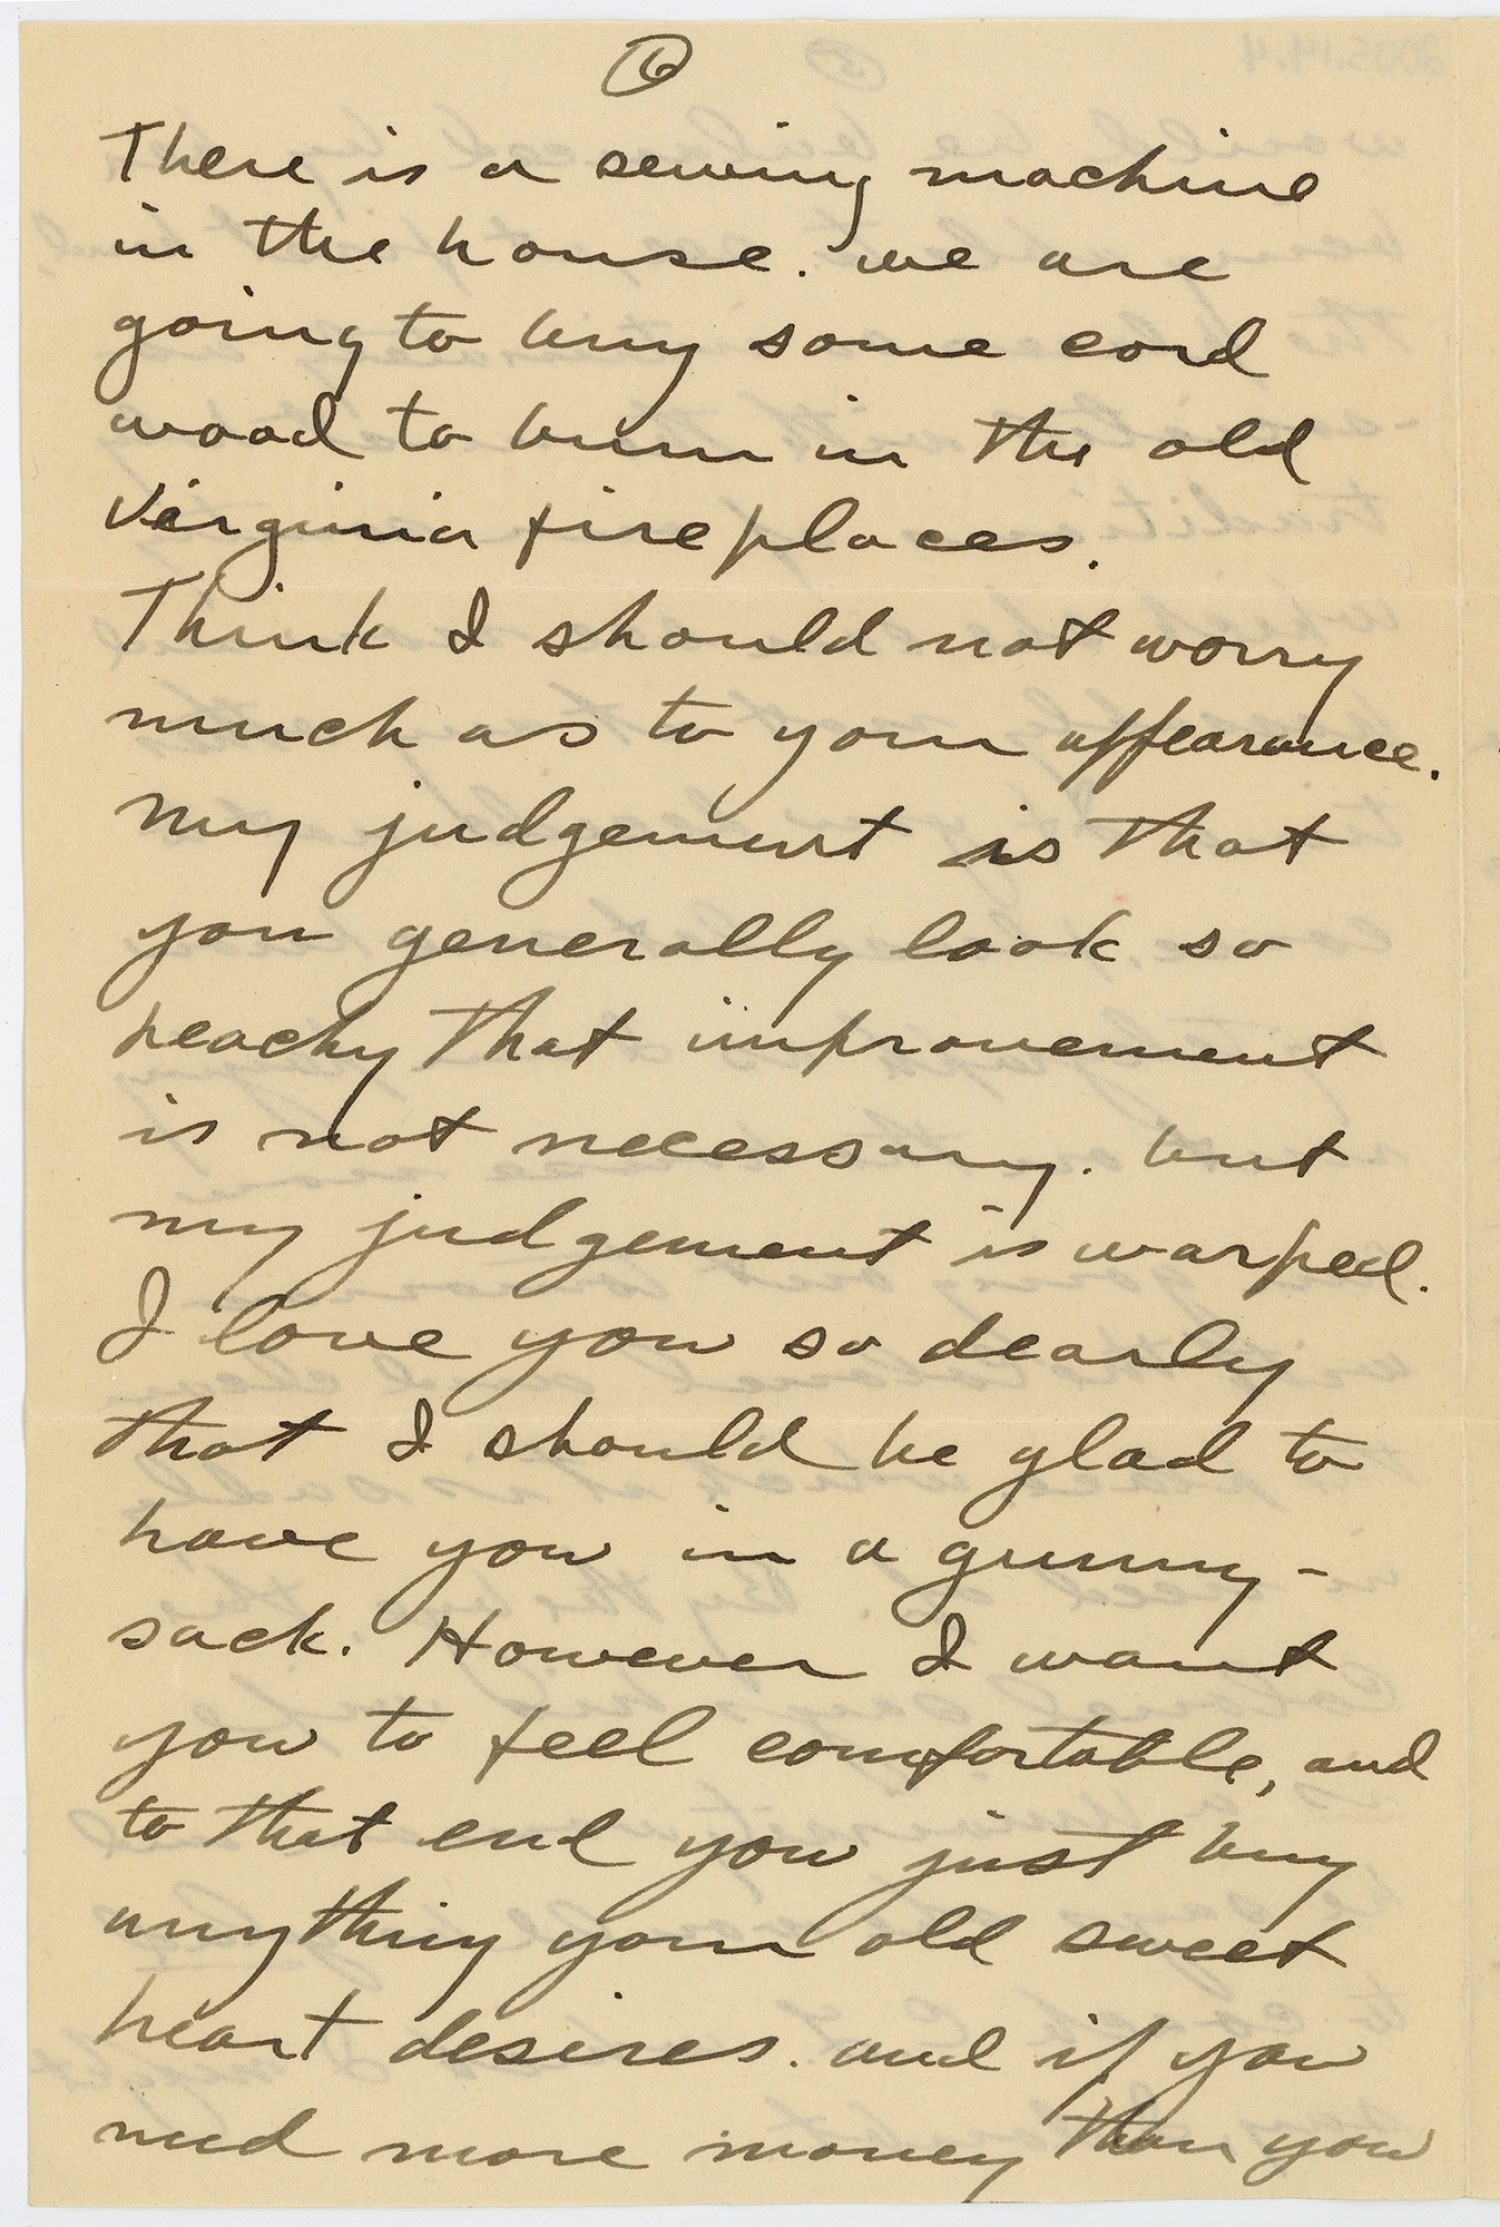 6
There is a sewing machine
in the house. we are
going to buy some cord
wood to burn in the old
Virginia fireplaces.
Think I should not worry
much as to your appearance.
my judgement is that
you generally look so
peachy that improvement
is not necessary. but
my judgement is warped.
I love you so dearly
that I should be glad to
have you in a gunny-
sack. However I want
you to feel comfortable, and
to that end you just buy
anything your old sweet
heart desires. and if you
need more money than you